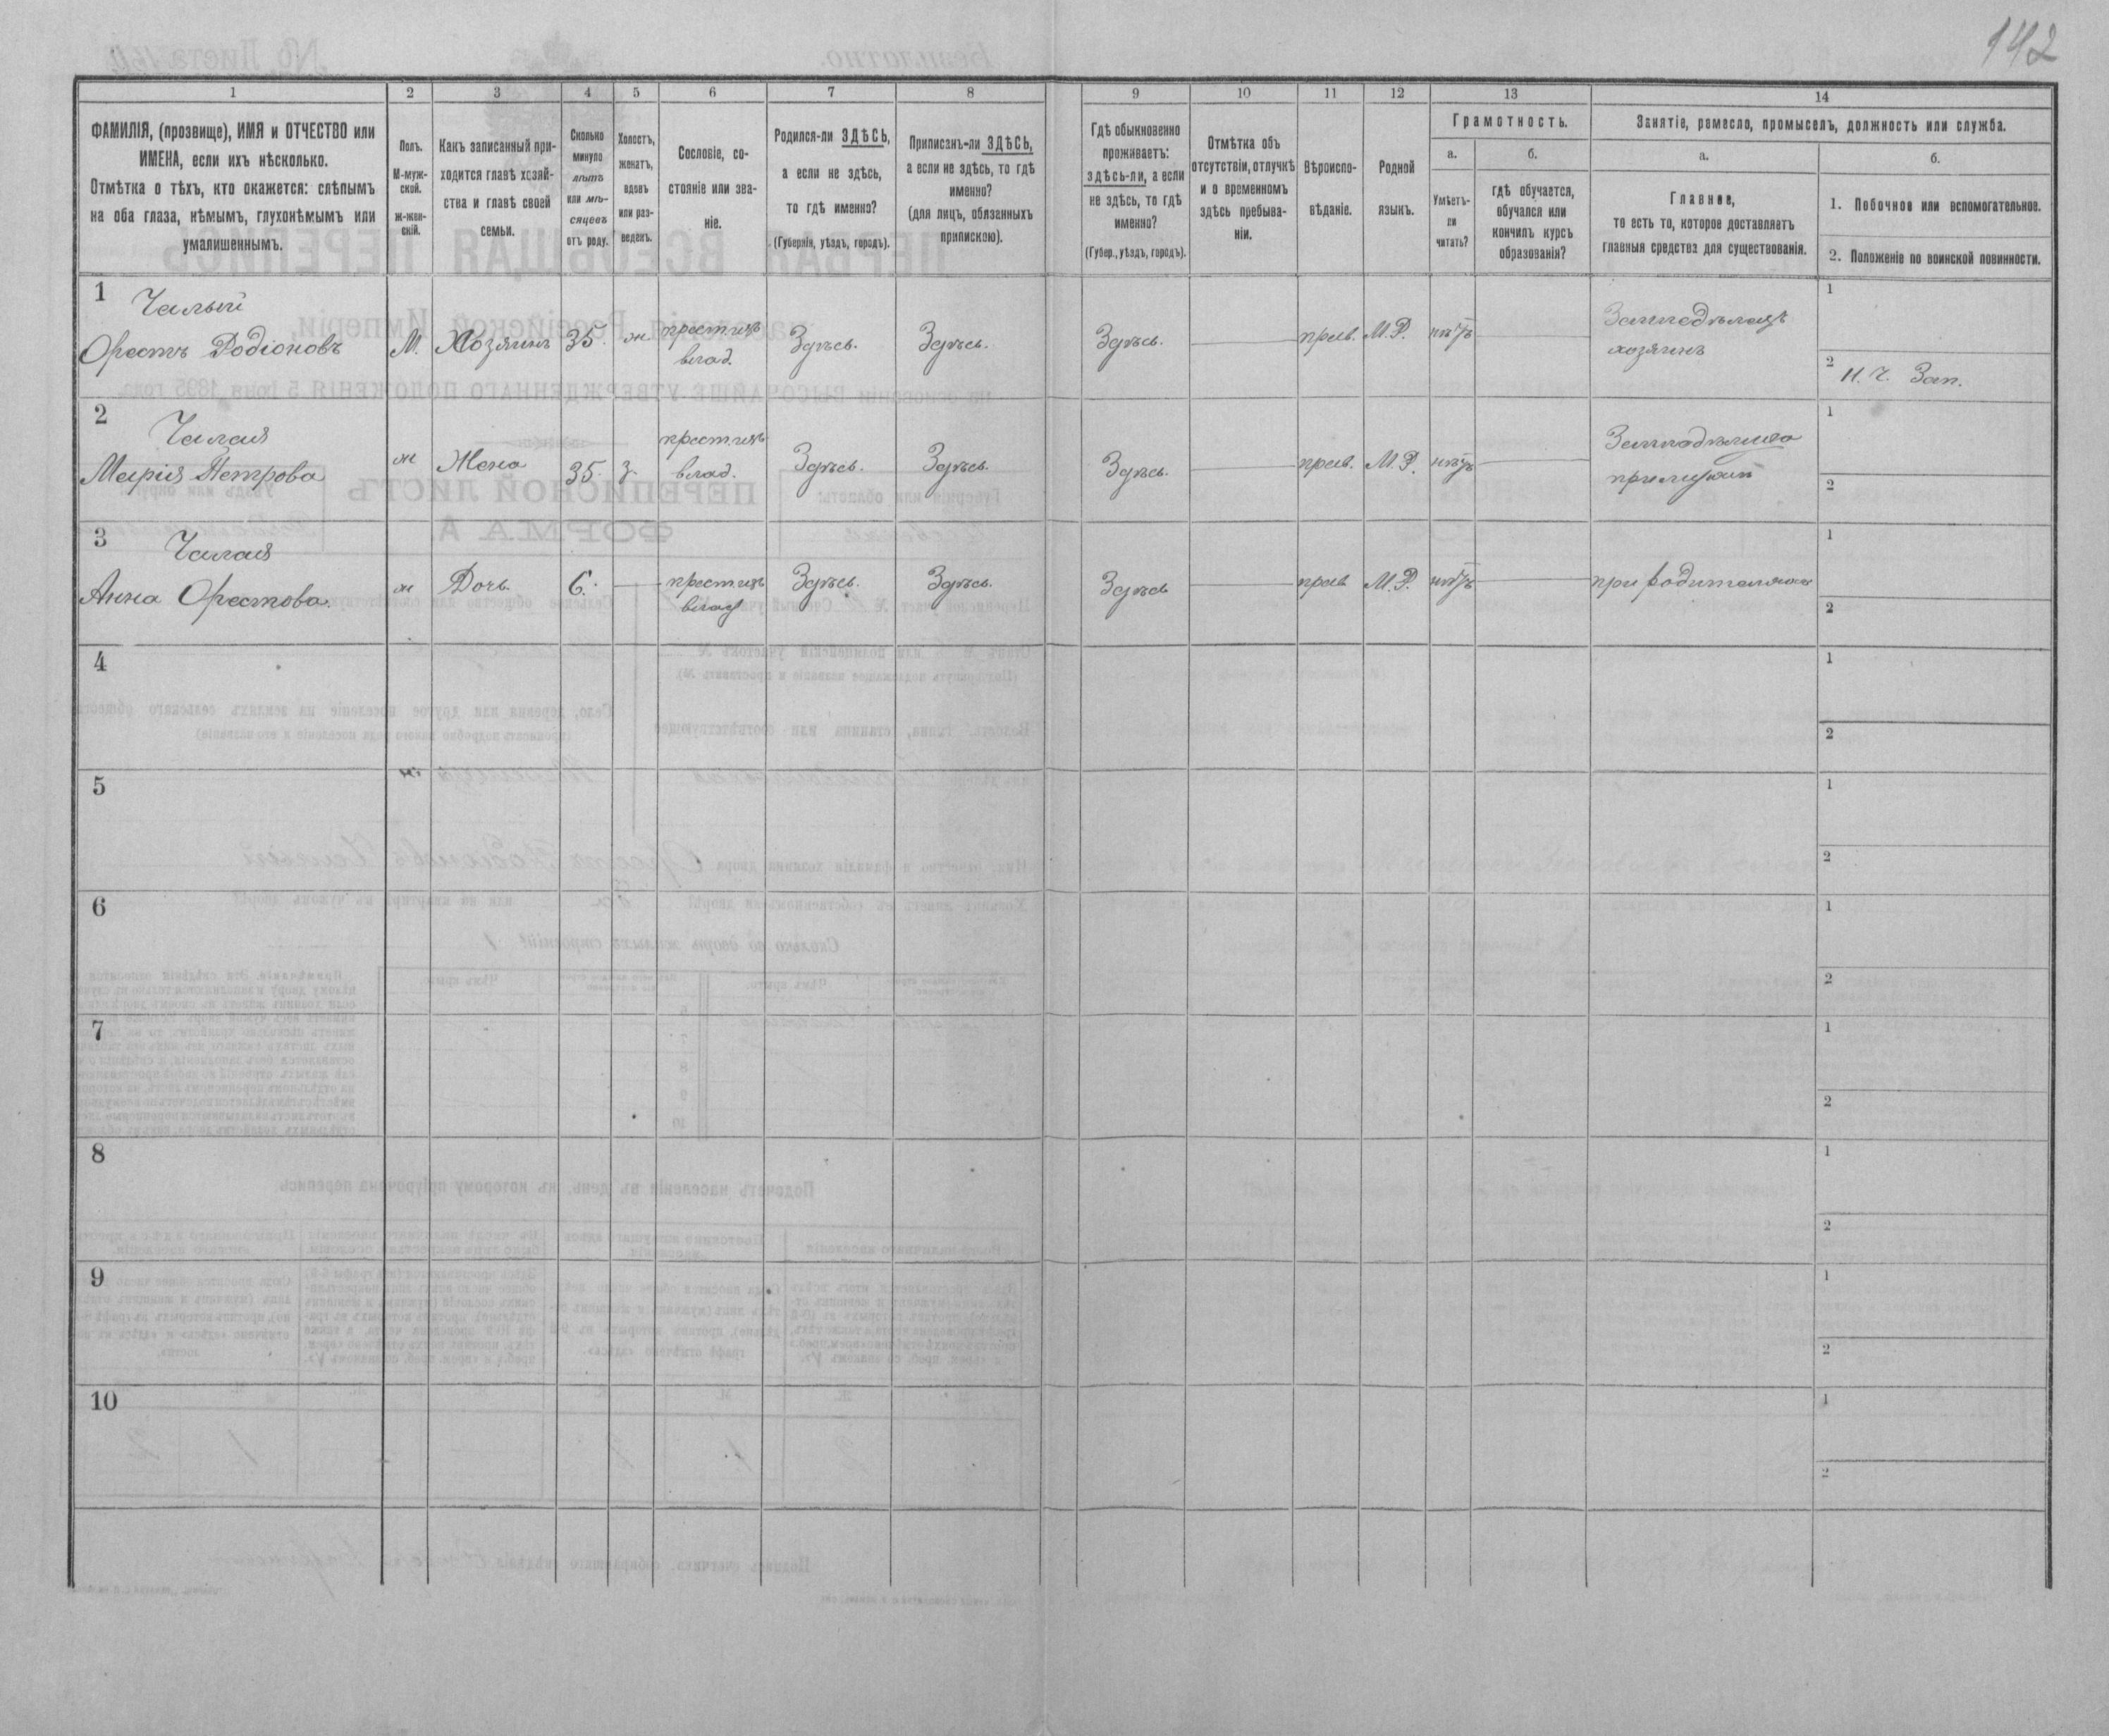 142
1 2 3 4 5 6 7 8 9 10 11 12 13 14
ФАМИЛІЯ, (прозвище), ИМЯ и ОТЧЕСТВО или
ИМЕНА, если ихъ нѣсколько.
Отмѣтка о тѣхъ, кто окажется: слѣпымъ
на оба глаза, нѣмымъ, глухонѣмымъ или
умалишеннымъ.
Полъ.
М-муж-
ской.
ж-жен-
скій.
Какъ записанный при-
ходится главѣ хозяй-
ства и главѣ своей
семьи.
Сколько
минуло
лѣтъ
или мѣ-
сяцевъ
отъ роду.
Холостъ,
женатъ,
вдовъ
или раз-
веденъ.
Сословіе, со-
стояніе или зва-
ніе.
Родился-ли ЗДѢСЬ,
а если не здѣсь,
то гдѣ именно?
(Губернія, уѣздъ, городъ).
Приписанъ-ли ЗДѢСЬ,
а если не здѣсь, то гдѣ
именно?
(для лицъ, обязанныхъ
припискою).
Гдѣ обыкновенно
проживаетъ:
здѣсь-ли, а если
не здѣсь, то гдѣ
именно?
(Губер., уѣздъ, городъ).
Отмѣтка объ
отсутствіи, отлучкѣ
и о временномъ
здѣсь пребыва-
ніи.
Вѣроиспо-
вѣданіе.
Родной
языкъ.
Грамотность.
а.
Умѣетъ-
ли
читать?
б.
гдѣ обучается,
обучался или
кончилъ курсъ
образованія?
Занятіе, ремесло, промыселъ, должность или служба.
а.
Главное,
то есть то, которое доставляетъ
главныя средства для существованія.
б.
1. Побочное или вспомогательное.
2. Положеніе по воинской повинности.
1
Чалый
Орестъ Родіоновъ
М. Хозяинъ 35. ж
крест. изъ
влад.
Здѣсь. Здѣсь. Здѣсь. прав. М.Р. нѣтъ
Земледѣлецъ
хозяинъ
1
2 Н. Ч. Зап.
2
Чалая
Марія Петрова
ж Жена 35. з.
крест. изъ
влад.
Здѣсь. Здѣсь. Здѣсь. прав. М.Р. нѣтъ
1
2
3
Чалая
Анна Орестова.
ж Дочь. 6.
крест. изъ
влад
Здѣсь. Здѣсь. Здѣсь прав М.Р. нѣтъ
при родителяхъ
1
2
4
1
2
5
1
2
6
1
2
7
1
2
8
1
2
9
1
2
10
1
2